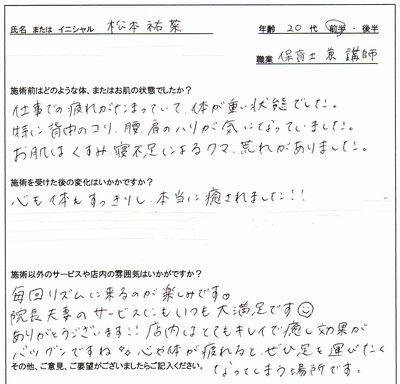 氏名 または イニシャル 松本 祐菜 年齢 20代 前半・後半
職業 保育士兼講師
施術前はどのような体、またはお肌の状態でしたか?
仕事での疲れがたまっていて、体が重い状態でした。
特に背中のコリ、腰、肩のハリが気になっていました。
お肌はくすみ、寝不足によるクマ、荒れがありました。
施術を受けた後の変化はいかがですか?
心も体もすっきりし、本当に癒されました!!
施術以外のサービスや店内の雰囲気はいかがですか?
毎回リズムに来るのが楽しみです。
院長夫妻のサービスにもいつも大満足です☺
ありがとうございます!! 店内はとてもキレイで癒し効果が
バツグンですね 心や体が疲れると、ぜひ足を運びたく
なってしまう場所です。
その他、ご意見、ご要望がございましたらご記入ください。